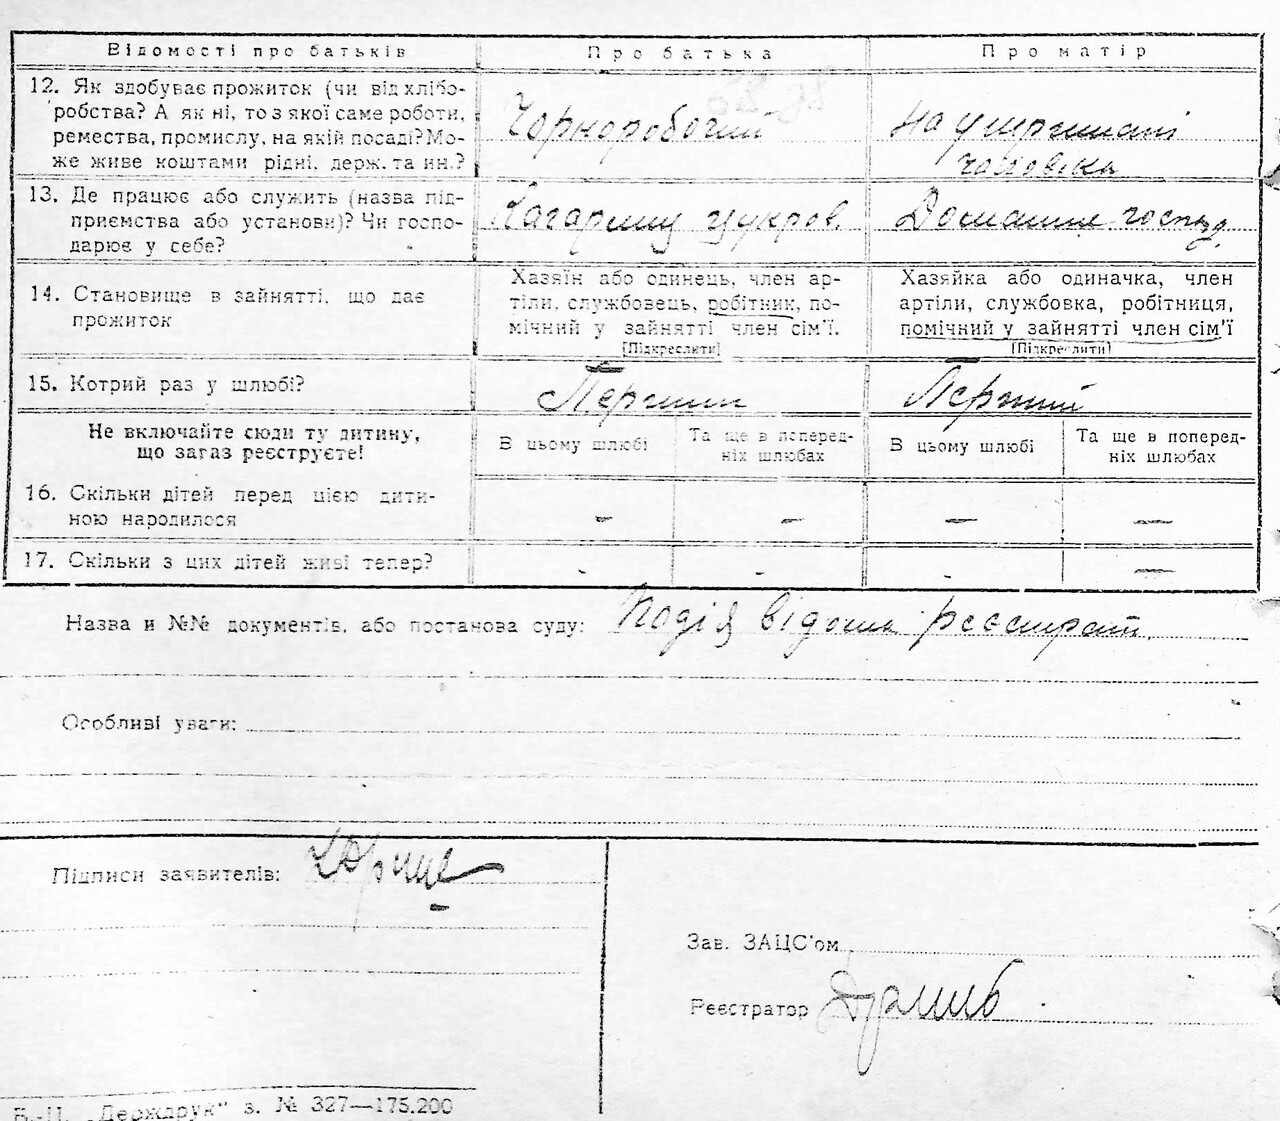 Відомості про батьків
Про батька
Про матір
12. Як здобуває прожиток (чи від хлібо-
робства? А як ні, то з якої саме роботи,
ремества, промислу, на якій посаді? Мо-
же живе коштами рідні, держ. та ин.?
Чорноробочий
На утриманні
чоловіка
13. Де працює або служить (назва під-
приємства або установи)? Чи госпо-
дарює у себе?
цукров.
Домашнє господ.
14. Становище в зайнятті, що дає
прожиток
Хазяїн або одинець, член ар-
тіли, службовець, робітник, по-
мічний у зайнятті член сім'ї.
[Підкреслити]
Хазяйка або одиначка, член
артіли, службовка, робітниця,
помічний у зайнятті член сім'ї
[Підкреслити]
15. Котрий раз у шлюбі?
Перший
Перший
Не включайте сюди ту дитину,
що загаз реєструєте!
В цьому шлюбі
Та ще в поперед-
ніх шлюбах
В цьому шлюбі
Та ще в поперед-
ніх шлюбах
16. Скільки дітей перед цією дити-
ною народилося
– – – —
17. Скільки з цих дітей живі тепер?
- - - —
Назва и №№ документів, або постанова суду: Подія відома реєстрат.
Особливі уваги:
Підписи заявителів:
Зав. ЗАЦС'ом
Реєстратор
Б.-Ц. „Держдрук" з. № 327—175.200